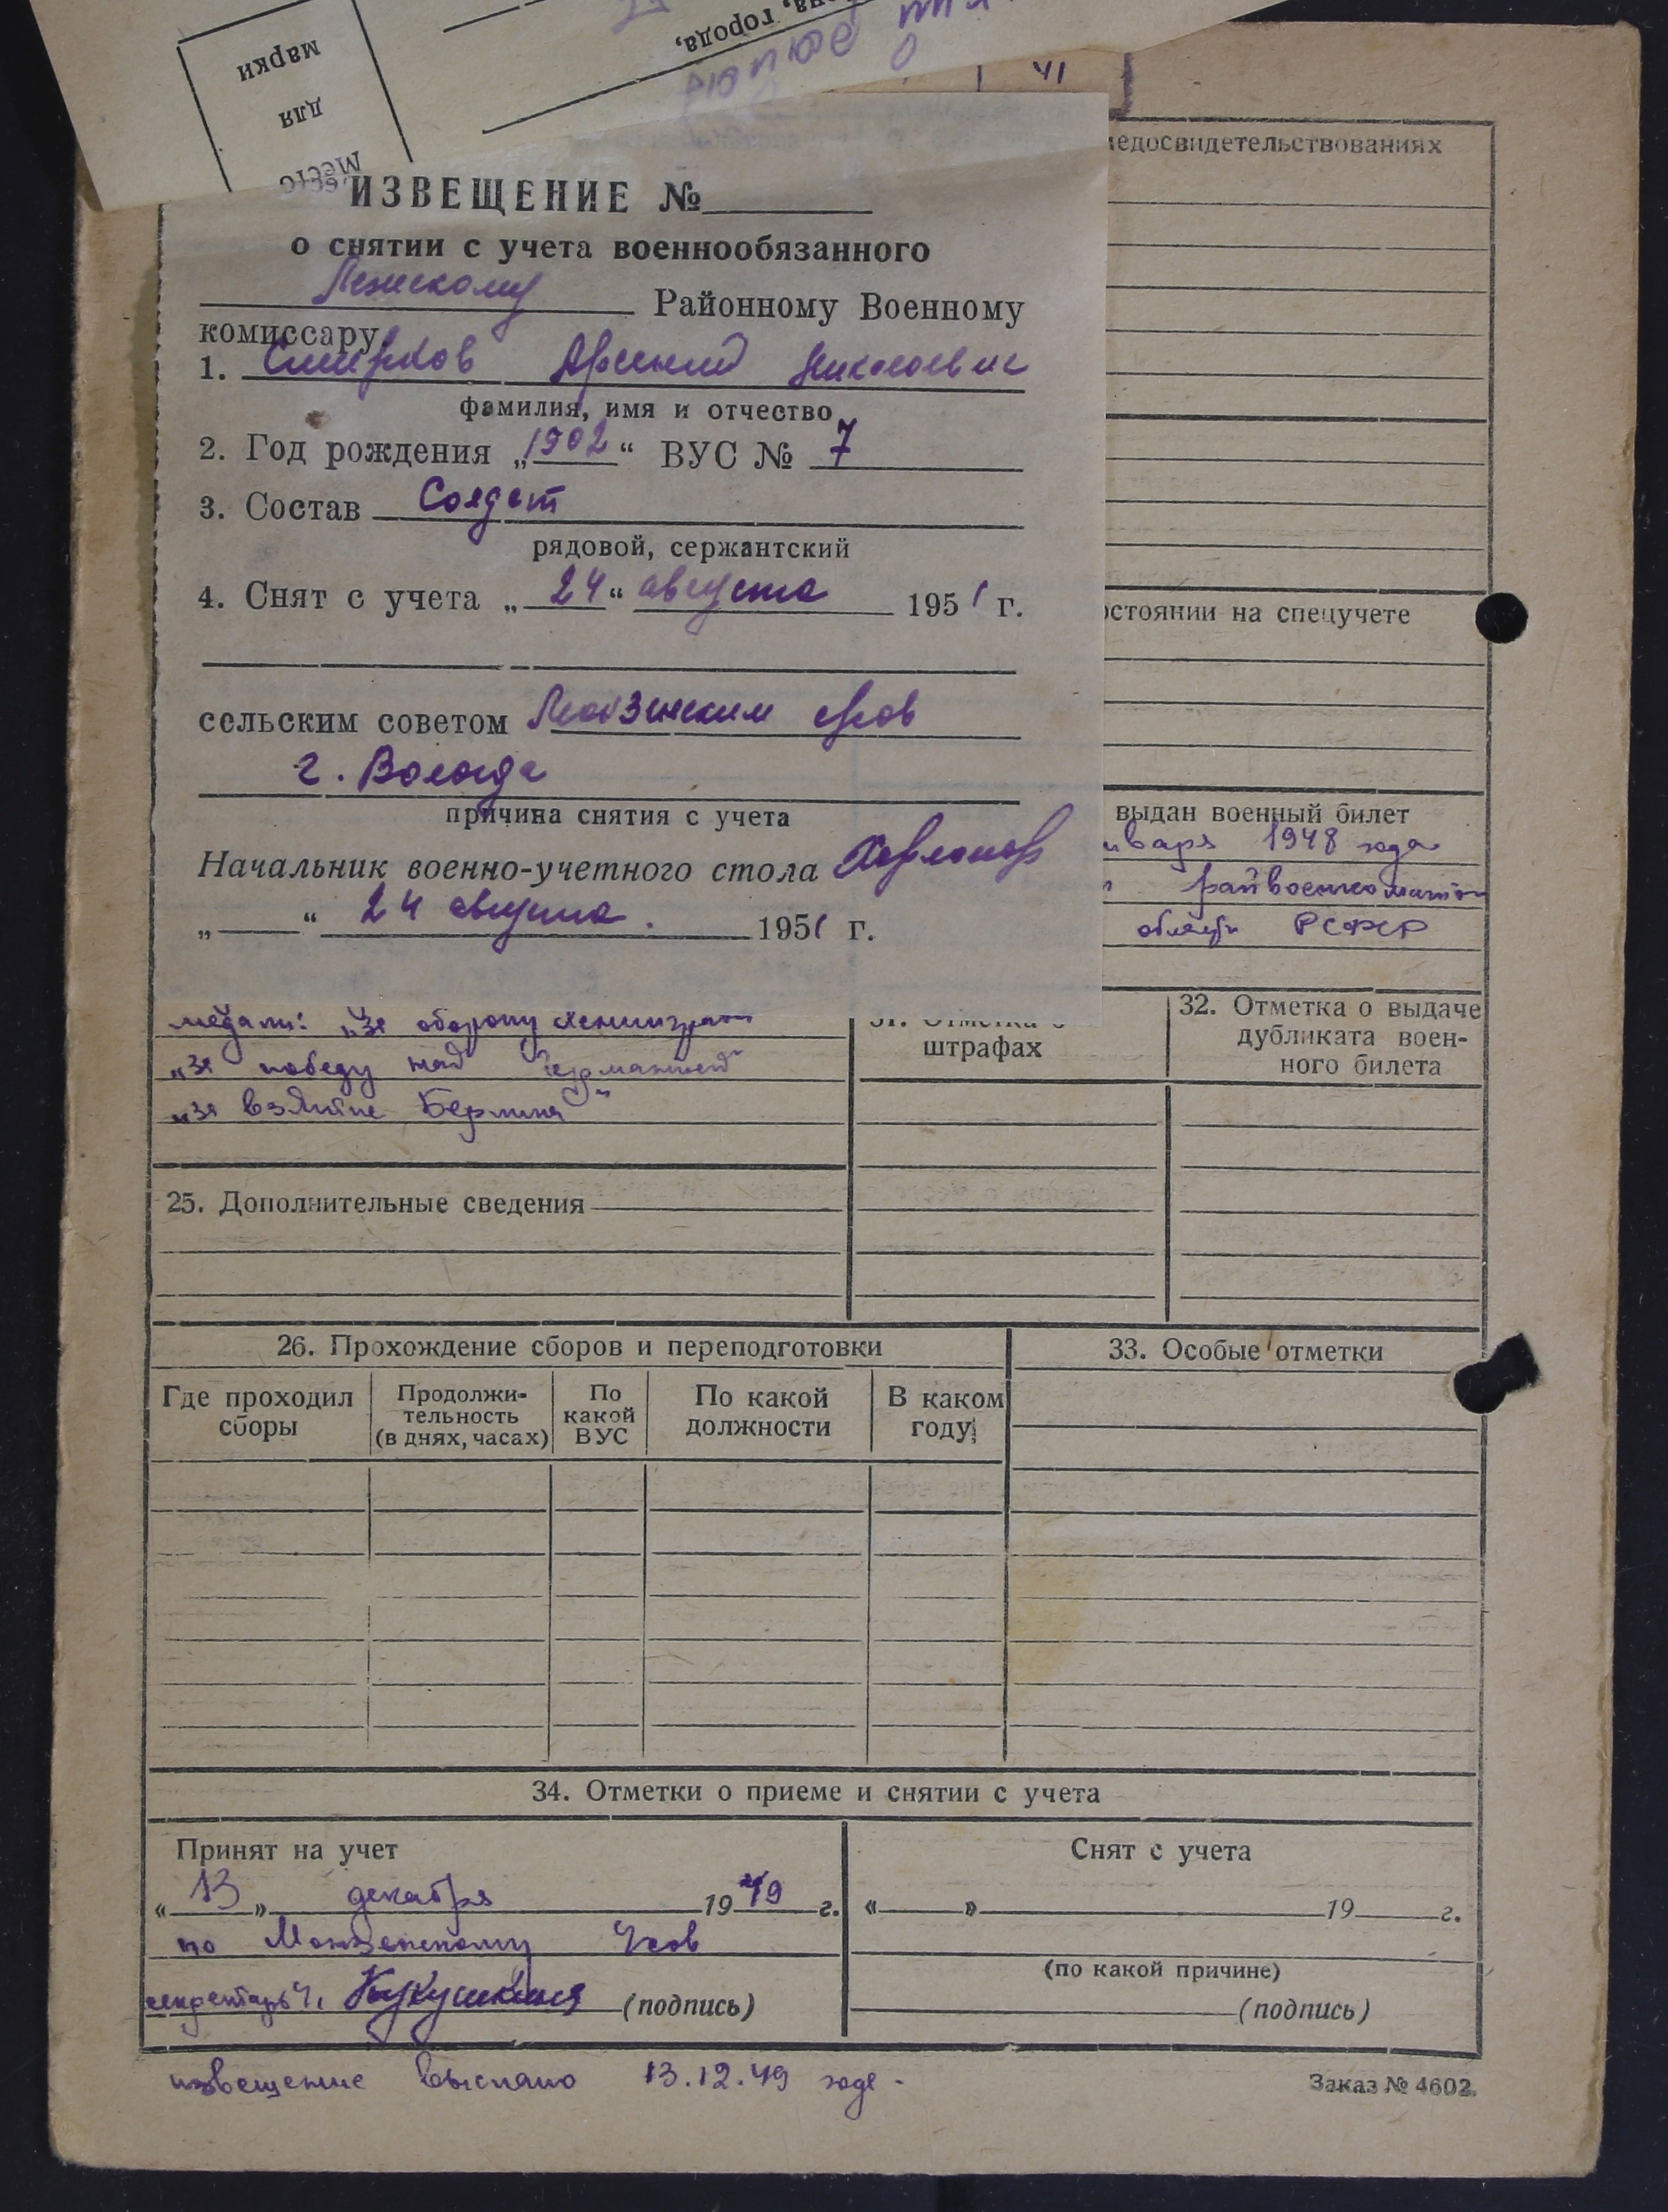 марки
для
Место
города,
41
ИЗВЕЩЕНИЕ №
о снятии с учета военнообязанного
Районному Военному
комиссару
1. Смирнов Арсений Николаевич
фамилия, имя и отчество
2. Год рождения „1902“ ВУС № 7
3. Состав Солдат
рядовой, сержантский
4. Снят с учета „24“ августа 1951 г.
сельским советом
г. Вологда
причина снятия с учета
Начальник военно-учетного стола
„ “ 24 августа. 1951 г.
медосвидетельствованиях
остоянии на спецучете
выдан военный билет
нваря 1948 года
райвоенкоматом
РСФСР
медали: „За оборону Ленинграда
„За победу над Германией“
„За взятие Берлина“
31. Отметка о
штрафах
32. Отметка о выдаче
дубликата воен-
ного билета
25. Дополнительные сведения
26. Прохождение сборов и переподготовки
33. Особые отметки
Где проходил
сборы
Продолжи-
тельность
(в днях, часах)
По
какой
ВУС
По какой
должности
В каком
году
34. Отметки о приеме и снятии с учета
Принят на учет
« 13 » декабря 1949 г.
по Монзенскому
Кукушкина (подпись)
Снят с учета
« » 19 г.
(по какой причине)
(подпись)
извещение выслано 13.12.49 года.
Заказ № 4602.